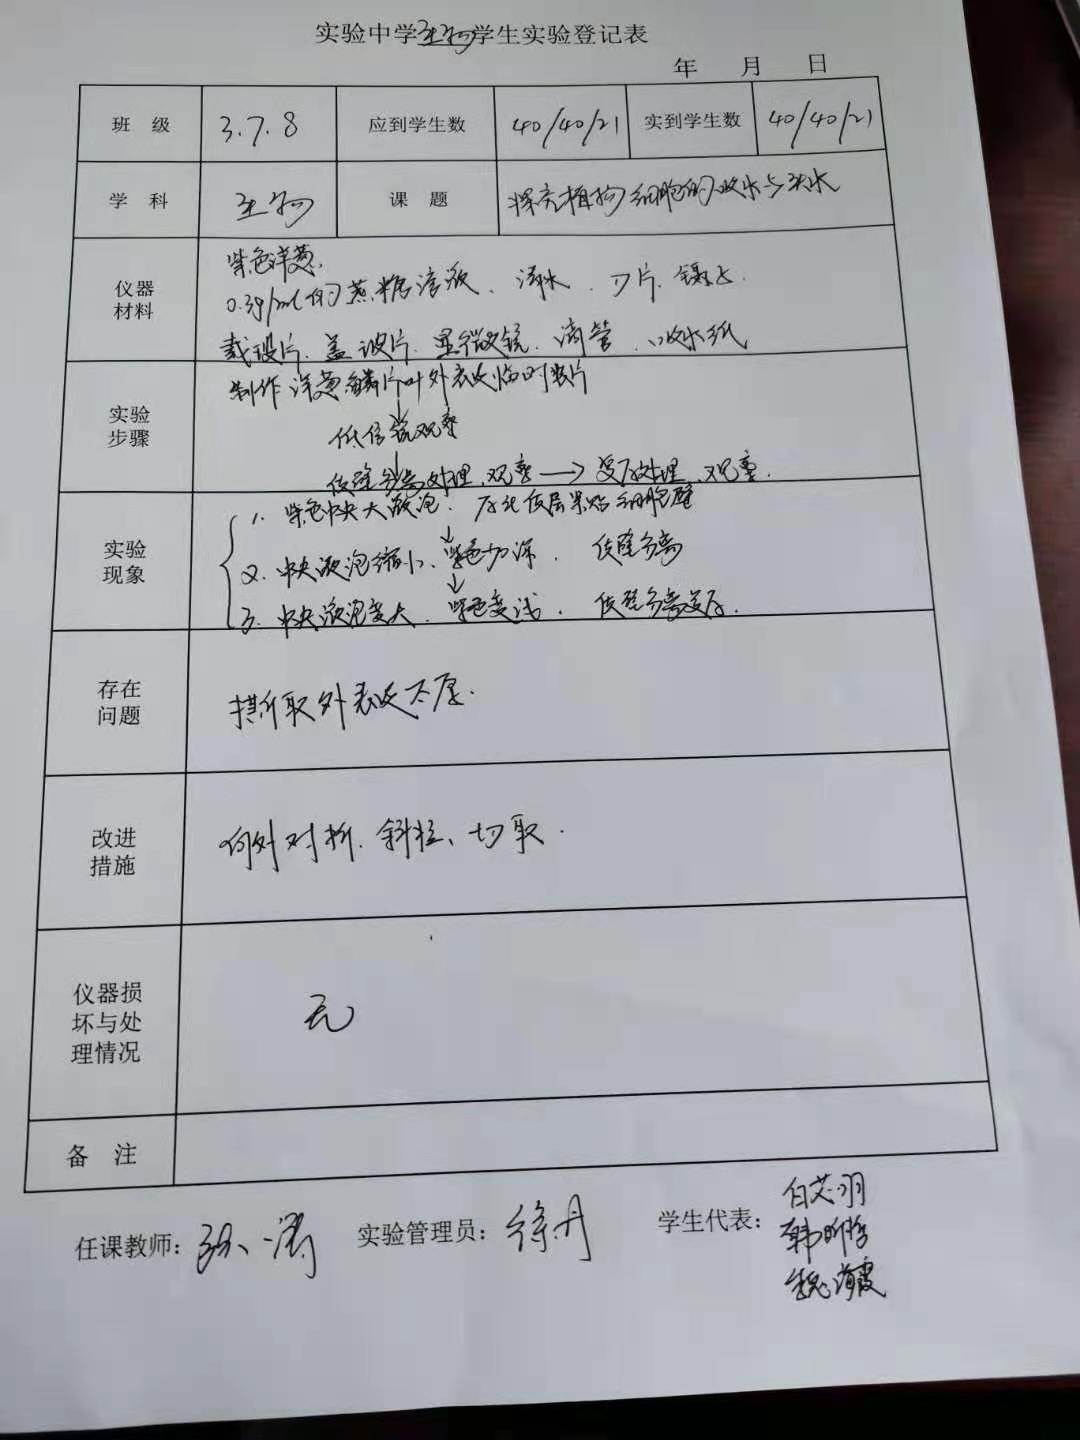 实验中学生物学生实验登记表
年 月 日
班 级 3.7.8 应到学生数 40/40/21 实到学生数 40/40/21
学 科 生物 课 题 探究植物细胞的吸水与失水
仪器材料 紫色洋葱.
0.3g/ml的蔗糖溶液、清水、刀片、镊子、
载玻片、盖玻片、显微镜、滴管、吸水纸
实验步骤 制作洋葱鳞片叶外表皮临时装片
↓
低倍镜观察
↓
质壁分离处理、观察 → 复原处理、观察.
实验现象 1. 紫色中央大液泡、原生质层紧贴细胞壁
↓
2. 中央液泡缩小、紫色加深、质壁分离
↓
3. 中央液泡变大、紫色变浅、质壁分离复原.
存在问题 撕取外表皮太厚.
改进措施 向外对折、斜拉、切取.
仪器损坏与处理情况 无
备 注
任课教师: 实验管理员:徐丹 学生代表: